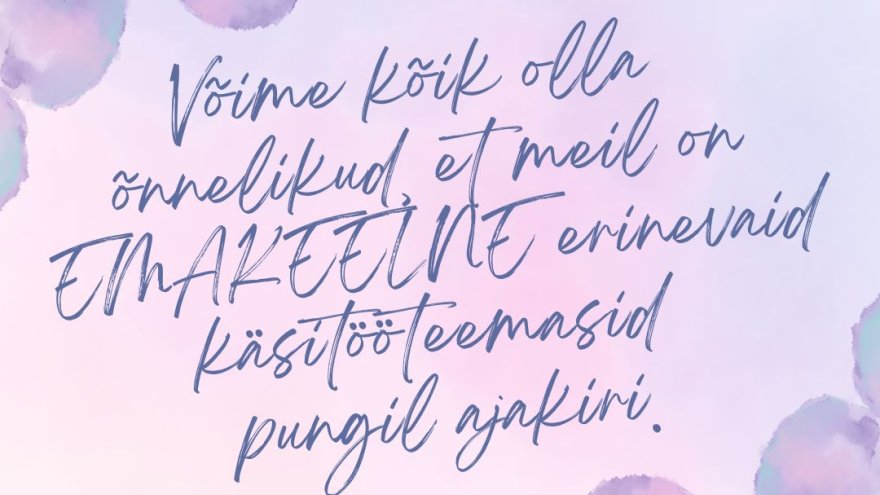 Võime kõik olla
õnnelikud, et meil on
EMAKEELNE erinevaid
käsitööteemasid
pungil ajakiri.